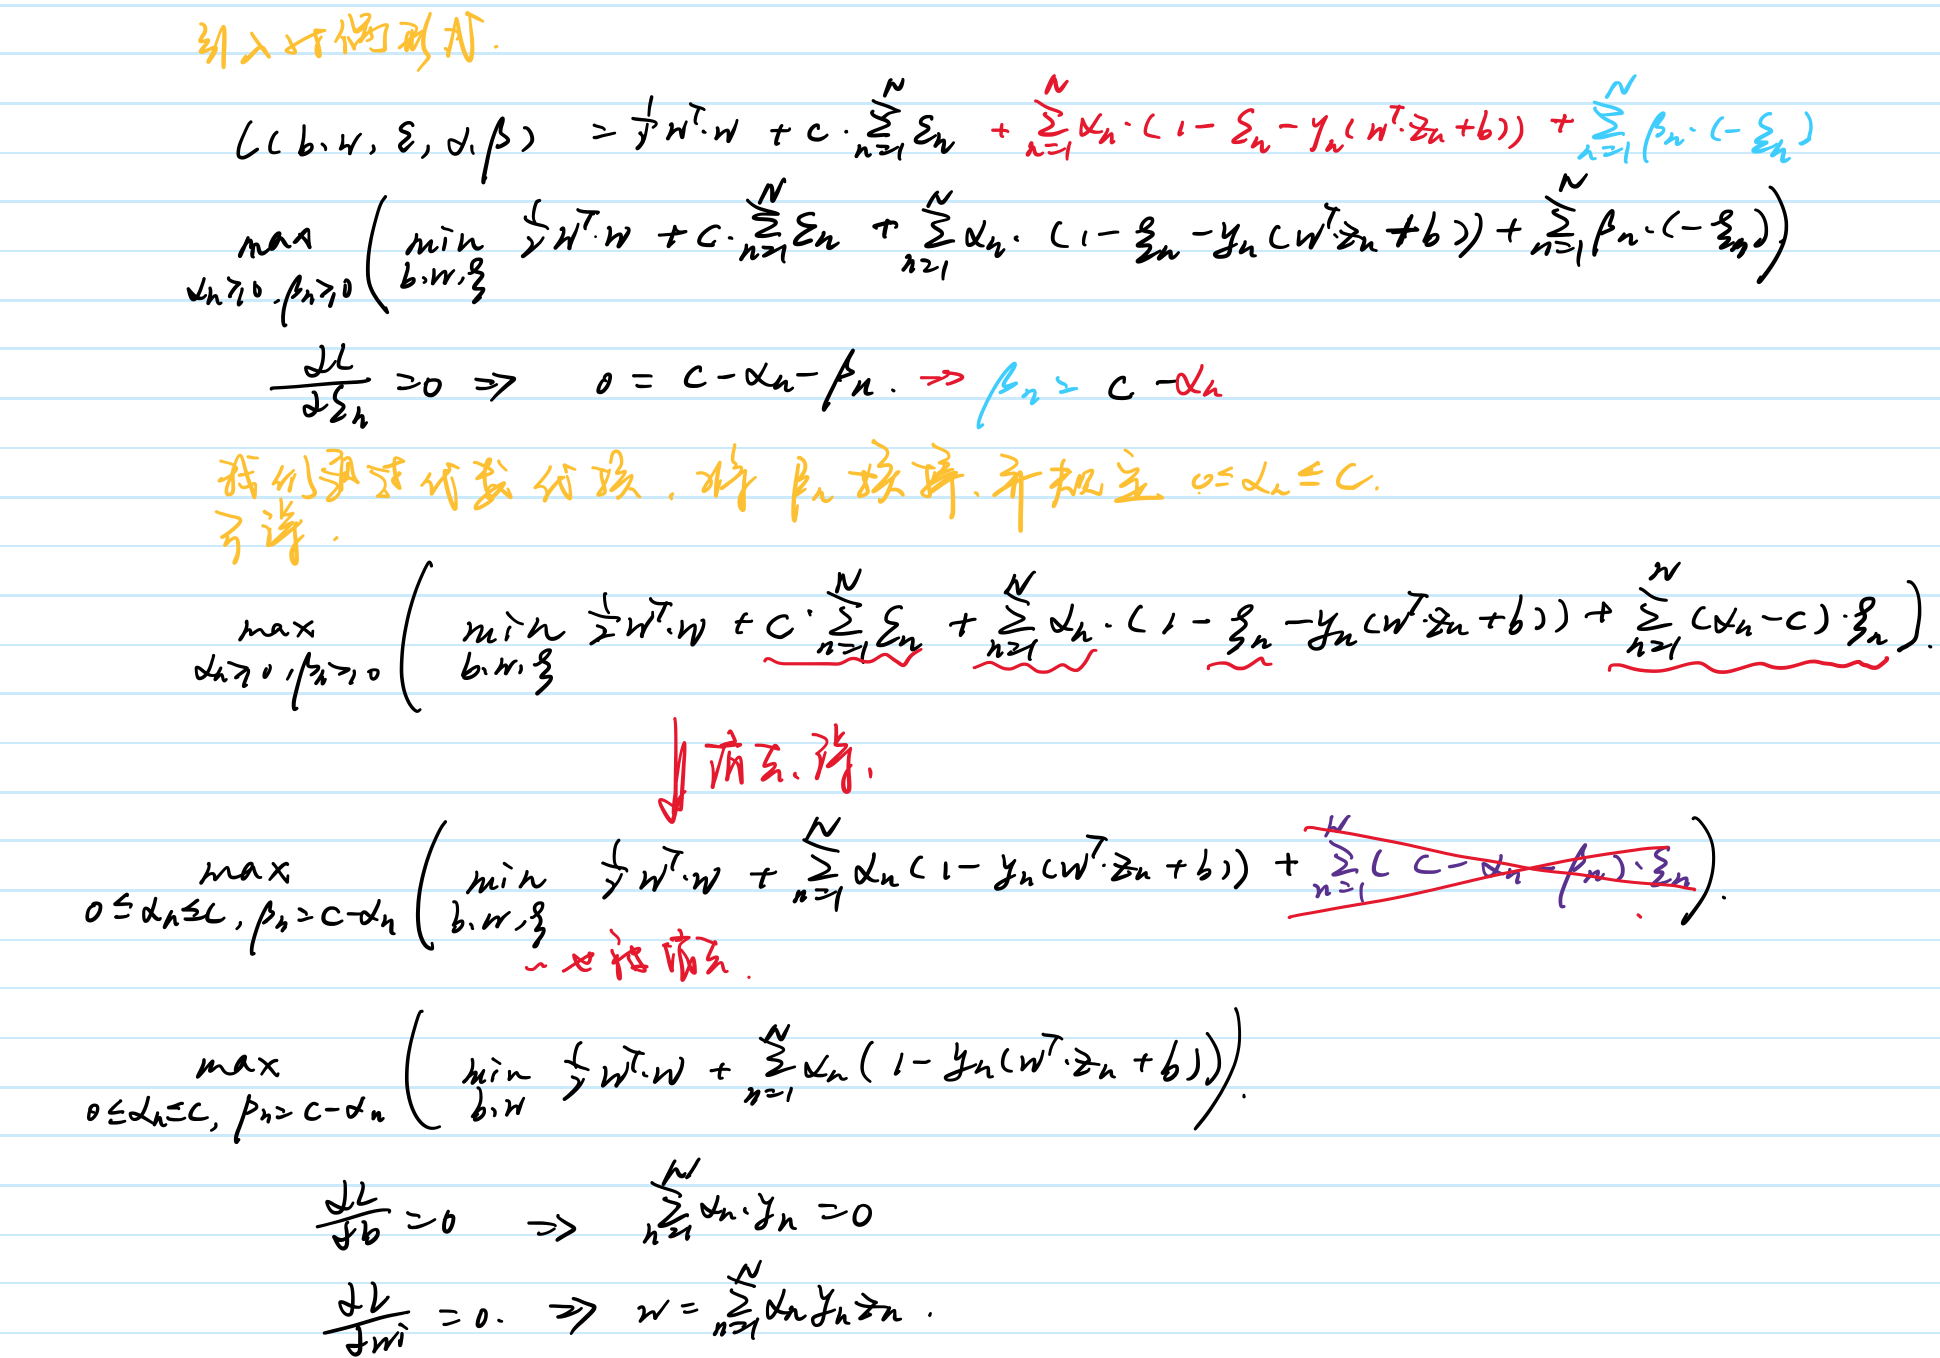 引入对偶形式.
L(b, w, ξ, α, β) = 1/2 w^T·w + C·∑_{n=1}^{N} ξ_n + ∑_{n=1}^{N} α_n·(1 - ξ_n - y_n(w^T·z_n + b)) + ∑_{n=1}^{N} β_n·(-ξ_n)
max_{α_n≥0, β_n≥0} ( min_{b,w,ξ} 1/2 w^T·w + C·∑_{n=1}^{N} ξ_n + ∑_{n=1}^{N} α_n·(1 - ξ_n - y_n(w^T·z_n + b)) + ∑_{n=1}^{N} β_n·(-ξ_n) )
∂L/∂ξ_n = 0 ⇒ 0 = C - α_n - β_n. ⇒ β_n = C - α_n
我们要代换, 将 β_n 换掉, 并规定 0 ≤ α_n ≤ C.
可得.
max_{α_n≥0, β_n≥0} ( min_{b,w,ξ} 1/2 w^T·w + C·∑_{n=1}^{N} ξ_n + ∑_{n=1}^{N} α_n·(1 - ξ_n - y_n(w^T·z_n + b)) + ∑_{n=1}^{N} (α_n - C)·ξ_n ).
↓ 消去, 得,
max_{0≤α_n≤C, β_n=C-α_n} ( min_{b,w,ξ} 1/2 w^T·w + ∑_{n=1}^{N} α_n(1 - y_n(w^T·z_n + b)) + ∑_{n=1}^{N} (C - α_n - β_n)·ξ_n ).
也被消去.
max_{0≤α_n≤C, β_n=C-α_n} ( min_{b,w} 1/2 w^T·w + ∑_{n=1}^{N} α_n(1 - y_n(w^T·z_n + b)) ).
∂L/∂b = 0 ⇒ ∑_{n=1}^{N} α_n·y_n = 0
∂L/∂w_i = 0. ⇒ w = ∑_{n=1}^{N} α_n y_n z_n.